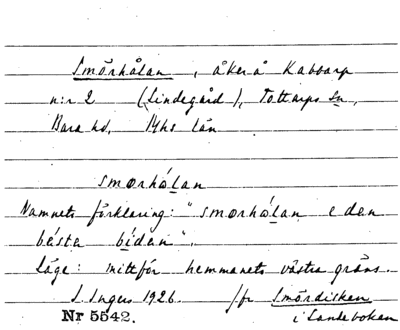 Smörhålan, åker å Kabbarp
n:r 2 (Lindegård), Tottarps Sn,
Bara hd, Mhs län
smœrhólan
Namnets förklaring: "smœrhólan e den
bésta bídan".
Läge: mittför hemmanets västra gräns.
I. Ingers 1926. /fr Smördisken
Nr 5542. i Landeboken